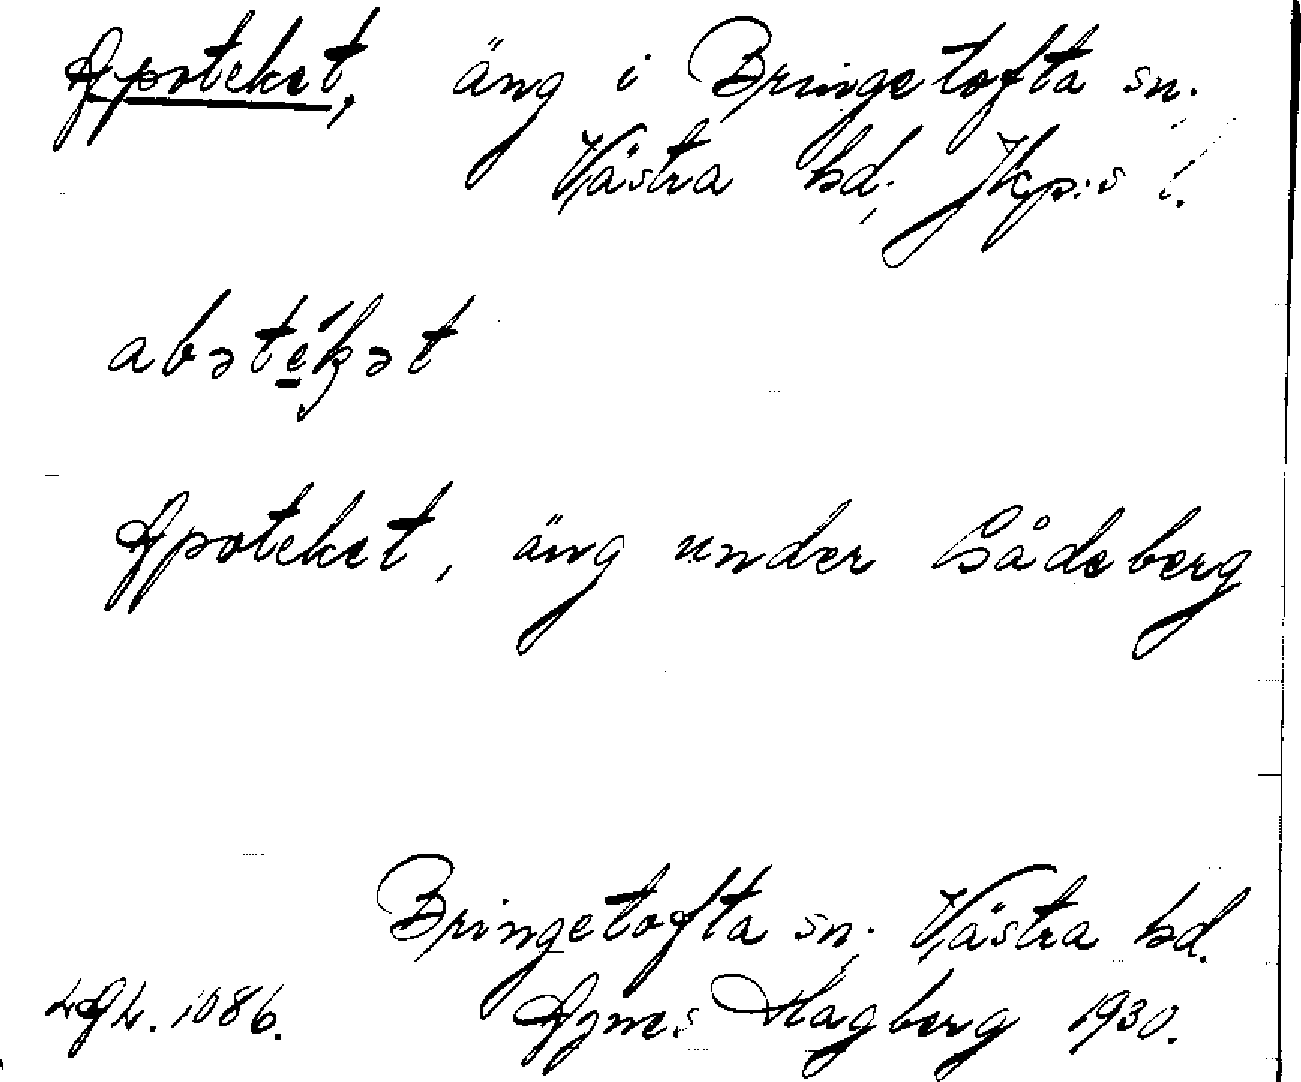 Apoteket, äng i Bringetofta sn.
Västra hd, Jkp:s l.
abətékət
Apoteket, äng under Gådeberg
Bringetofta sn. Västra hd.
LAL. 1086. Agnes Hagberg 1930.